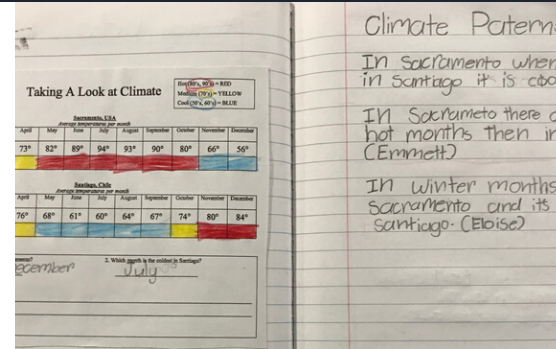 Taking A Look at Climate
Hot (80's, 90's) = RED
Medium (70's) = YELLOW
Cool (50's, 60's) = BLUE
Sacramento, USA
Average temperatures per month
April May June July August September October November December
73° 82° 89° 94° 93° 90° 80° 66° 56°
Santiago, Chile
Average temperatures per month
April May June July August September October November December
76° 68° 61° 60° 64° 67° 74° 80° 84°
2. Which month is the coldest in Santiago?
ecember
July
Climate Patern
In Sacramento when
in Santiago it is coo
In Sacrameto there
hot months then in
(Emmett)
In winter months
Sacramento and its
Santiago. (Eloise)